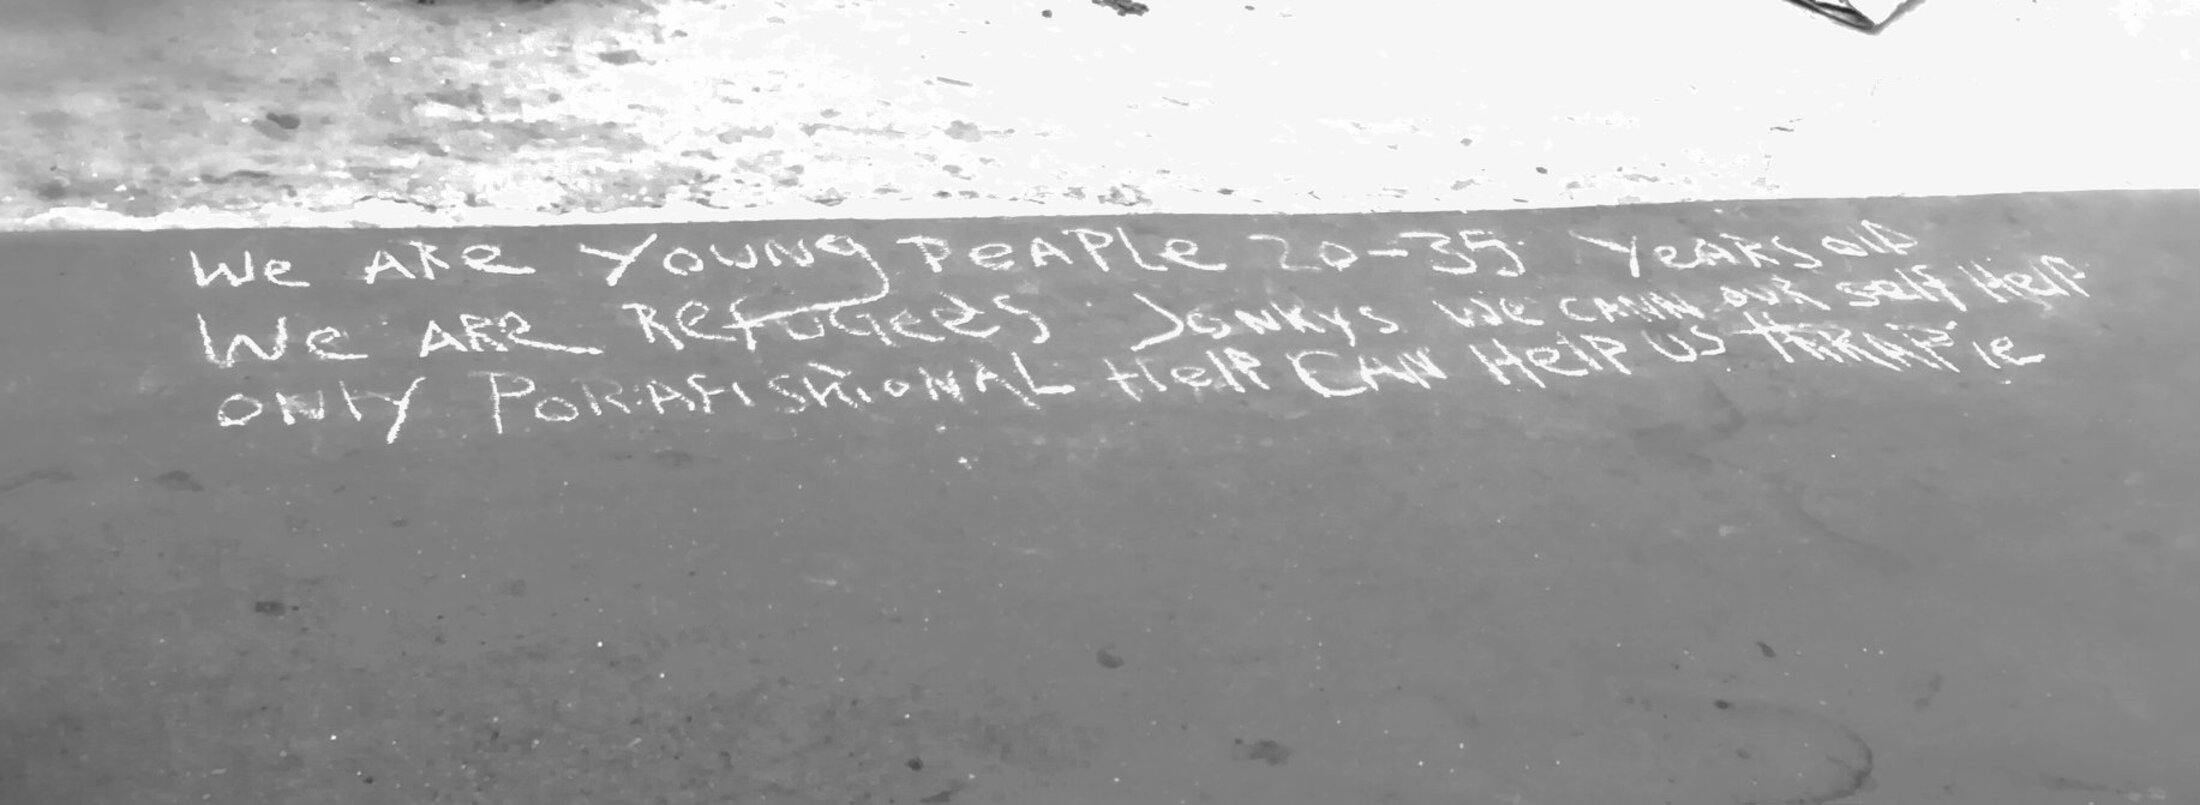 We ARe Young PeAPle 20-35 YeARs old
We ARe Refugees Jonkys We CANN OUR self Help
ONlY PORAFISHIONAL Help CAN Help US THRAPie